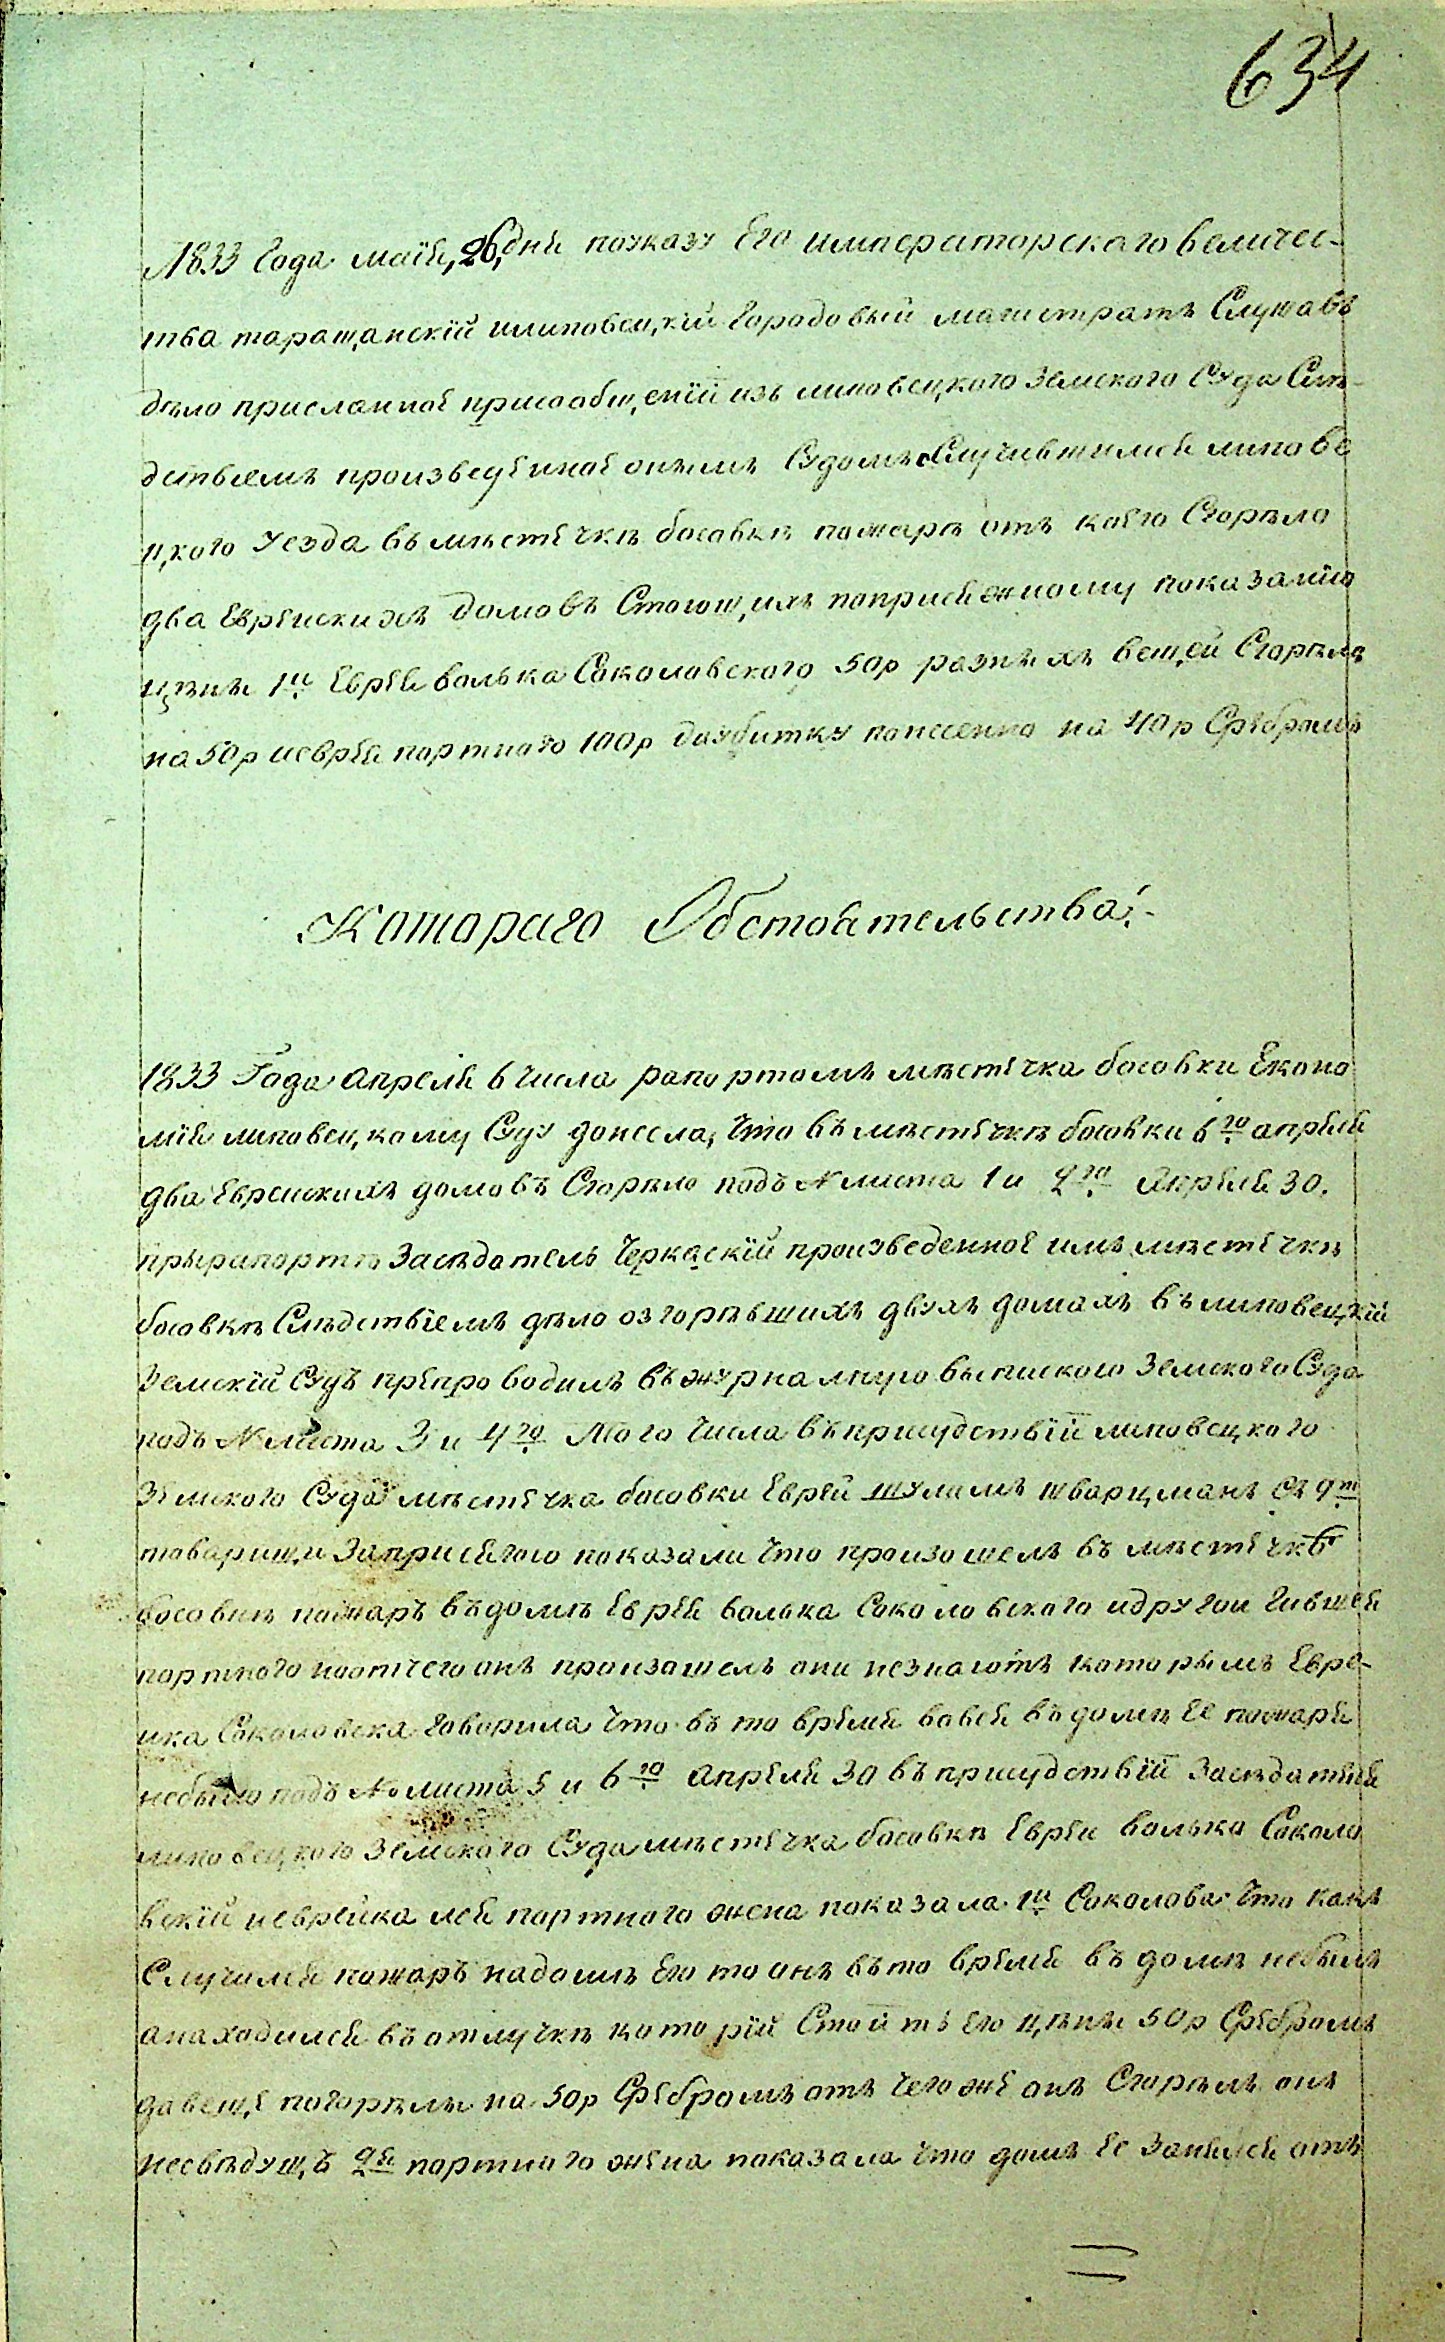 634
1833 Года маія, 26, дня поуказу Его императорского величес-
тва таращанскій илиповецкій городовый магистратъ Слушавъ
дѣло присланное присообщеніи изъ липовецкого Земского Суда Слѣ-
дствіемъ произведенное онымъ Судомъ оСлучившимся липове
цкого уезда въ мѣстечкѣ босовкѣ пожарѣ отъ коего Сгорѣло
два Еврейскихъ домовъ Стоющихъ поприсяжному показанію
цѣны 1й Еврея волька Соколовского 50р разныхъ вещей Сгорѣло
на 50р иеврея портного 100р даубитку понесенно на 40р Сребромъ
Котораго Обстоятельства:-
1833 Года апреля 6 числа рапортомъ мѣстечка босовки Еконо
мія липовецкому Суду донесла, что въ мѣстечкѣ босовки 6го апреля
два Еврейскихъ домовъ Сгорѣло подъ № листа 1 и 2го Апреля 30.
прырапортѣ Засѣдатель Черкаскій произведенное имъ мѣстечкѣ
босовкѣ Слѣдствіемъ дѣло озгорѣвшихъ двухъ домахъ въ липовецкій
Земскій Судъ препроводилъ въ журналную выпискою Земского Суда
подъ № листа 3 и 4го Того Числа въ присудствіи липовецкого
Земского Суда мѣстечка босовки Еврей шулимъ шварцманъ съ 9т
товарищи Заприсягою показали что произошелъ въ мѣстечкѣ
босовки пожаръ въ домѣ Еврея волька Соколовского идругои
портного ноотчего онъ произошелъ они незнаютъ которымъ Евре-
ика Соколовска говорила что въ то время вовся въ домѣ Ее пожаря
небыло подъ № листа 5 и 6го апреля 30 въ присудствіи Засѣдателя
липовецкого Земского Суда мѣстечка босовкѣ Евреи волько Соколо
вскій иеврейка лея портного жена показала 1й Соколова что какъ
Случился пожаръ надомъ Его то онъ въ то время въ домѣ небылъ
анаходился въ отлучкѣ которій Стоитъ Его цѣны 50р Сребромъ
давеще погорѣлы на 50р Сребромъ отъ чего же онъ Сгорѣлъ онъ
несвѣдущъ 2я портного жена показала что домъ Ее Занялся отъ